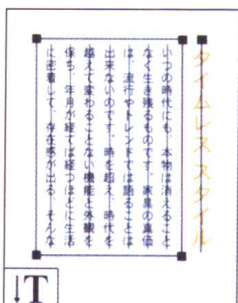 タイムレス スタイル
いつの時代にも、本物は消えること
なく生き残るものです。家具の真価
は、流行やトレンドでは語ることは
出来ないのです。時を超え、時代を
越えて変わることない機能と外観を
保ち、年月が経てば経つほどに生活
に密着して、存在感が出る。そんな
↓T